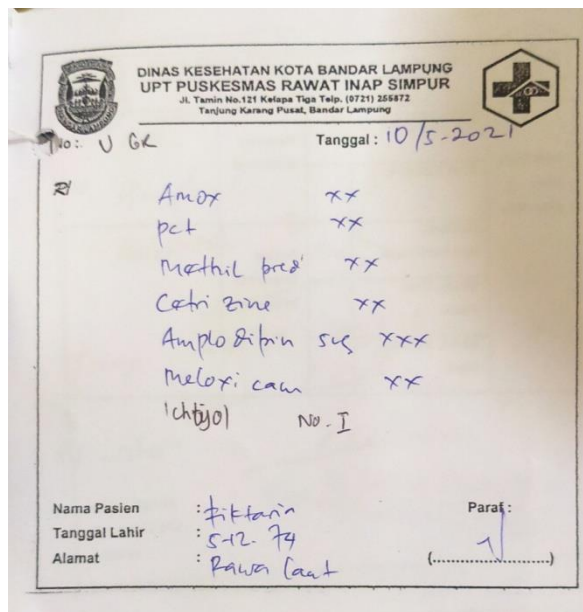 DINAS KESEHATAN KOTA BANDAR LAMPUNG
UPT PUSKESMAS RAWAT INAP SIMPUR
Jl. Tamin No.121 Kelapa Tiga Telp. (0721) 255672
Tanjung Karang Pusat, Bandar Lampung
No: U GK Tanggal : 10/5-2021
R/ Amox xx
pct xx
Methil pred xx
Cetri zine xx
Amplo dipin 5mg xxx
Meloxi cam xx
Ichtyol No. I
Nama Pasien : Paraf :
Tanggal Lahir : 5-12. 74
Alamat : Rawa Laut (....................)